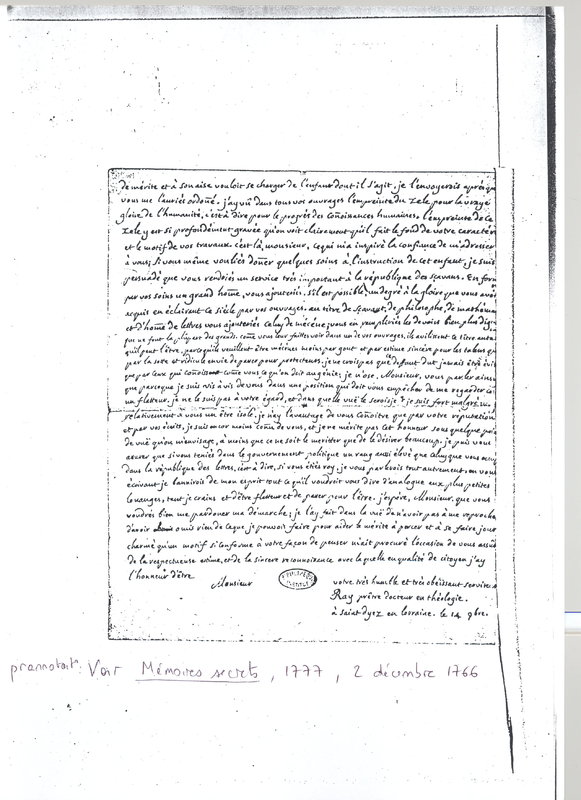 de mérite et à son aise vouloit se charger de l'enfant dont il s'agit. je l'envoyerois après que
vous me l'auriés ordoñé. j'ay vû dans tous vos ouvrages l'empreinte du zele pour la vraye
gloire de l'humanité, c'est à dire pour le progrès des coñoissances humaines. l'empreinte de ce
zele y est si profondément gravée qu'on voit clairement qu'il fait le fond de votre caractère
et le motif de vos travaux. c'est là, monsieur, ce qui m'a inspiré la confiance de m'adresser
à vous; si vous même vouliés doñer quelques soins à l'instruction de cet enfant, je suis
persuadé que vous rendriés un service très important à la république des sçavans. En form
par vos soins un grand hom̃e, vous ajouteriés, s'il est possible, un degré à la gloire que vous avés
acquis en éclairant ce siécle par vos ouvrages. au titre de sçavant, de philosophe, de mathém
et d'hom̃e de lettres vous ajouteriés celuy de mécéne; vous en rempliriés les devoirs bien plus dign
que ne font la plupart des grands. com̃e vous leur faites voir dans un de vos ouvrages, ils avilissent ce titre
qu'il peut l'être, parcequ'ils veulent être mécénes moins par gout et par estime sincére pour les talens qu
par la rare et ridicule envie de parer pour protecteurs. je ne crois pas que ce défaut dut jamais être
que par ceux qui coñoissent com̃e vous ce qu'on doit au génie; je n'ose, Monsieur, vous parler ainsi
que parceque je suis vis à vis de vous dans une position qui doit vous empêcher de me regarder com
un flatteur. je ne le suis pas à votre égard, et dans quelle vuë le serois-je? je suis fort malgré m
relativement à vous un être isolé. je n'ay l'avantage de vous coñoitre que par votre réputation
et par vos écrits, je suis encor moins coñu de vous, et je ne mérite pas cet honneur sous quelque poin
de vuë qu'on m'envisage, à moins que ce ne soit le meriter que de le désirer beaucoup. je puis vous
assurer que si vous teniés dans le gouvernement politique un rang aussi élevé que celuy que vous occup
dans la république des lettres, c'est à dire, si vous étiés roy, je vous parlerois tout autrement. en vous
écrivant je bannirois de mon esprit tout ce qu'il voudroit vous dire d'analogue aux plus petites
louanges, tant je crains et d'être flatteur et de passer pour l'être. j'espère, Monsieur, que vous
voudrés bien me pardoner ma démarche; je l'ay fait dans la vuë de n'avoir pas à me reprocher
d'avoir omis rien de ce que je pouvois faire pour aider le mérite à percer et à se faire jour
charmé qu'un motif si conforme à votre façon de penser m'ait procuré l'occasion de vous assurer
de la respectueuse estime, et de la sincére reconnoissance avec laquelle en qualité de citoyen j'ay
l'honneur d'être
Monsieur
votre très humble et très obéissant serviteur
Ray prêtre docteur en théologie.
à saint dyez en lorraine. le 14 9bre.
prannotait: Voir Mémoires secrets, 1777, 2 décembre 1766